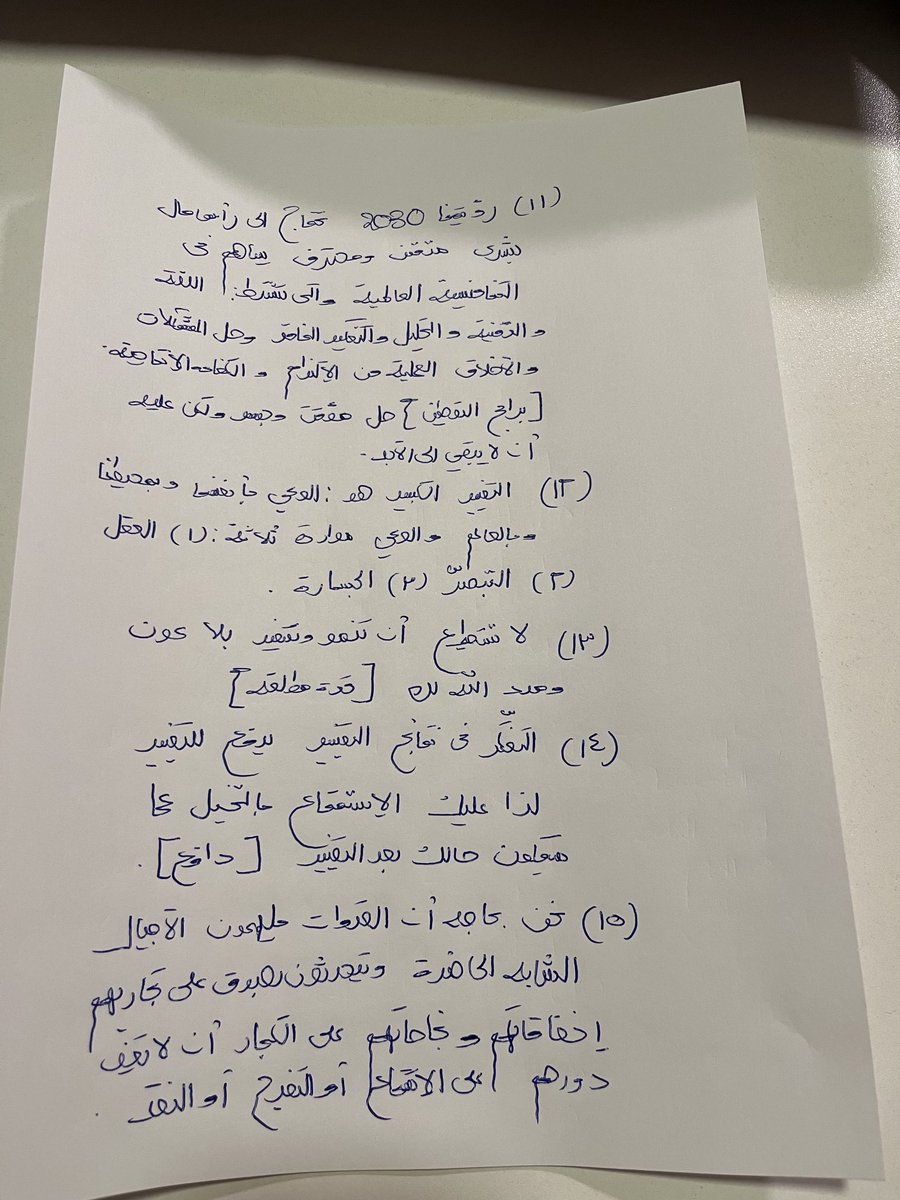 (١١) رؤيتنا 2030 تحتاج الى رأسمال
بشري مثقف ومحترف يساهم في
التنافسية العالمية والتي تشترط: اللغة
والتقنية والتحليل والتفكير الناقد وحل المشكلات
والأخلاق العملية من الإلتزام و الكفاءة الإنتاجية.
[برامج التوطين] حل مؤقت وجيد ولكن عليه
أن لا يبقى الى الأبد.
(١٢) التغيير الكبير هو: الوعي بأنفسنا وبمحيطنا
وبالعالم والوعي موارده ثلاثة: (١) العقل
(٢) التبصّر (٣) الجسارة.
(١٣) لا تستطيع أن تنمو وتتغير بلا عون
ومدد الله لك [قدرة مطلقة]
(١٤) التفكّر في نتائج التغيير يدفع للتغيير
لذا عليك الإستمتاع بالتخيل عما
سيكون حالك بعد التغيير [دافع].
(١٥) نحن بحاجة أن القدوات يلهمون الأجيال
الشابة الحاضرة ويتحدثون بصدق على تجاربهم
إخفاقاتهم ونجاحاتهم على الكبار أن لا يقف
دورهم على الاستماع أو التفرج أو النقد.